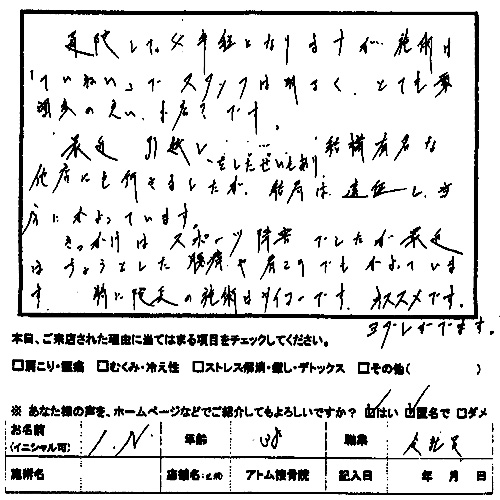 通院して4年程となりますが、施術は
「ていねい」で スタッフは明るく、とても雰
囲気の良いお店です。
最近 引越し をしたせいもあり 結構有名な
他店にも行きましたが、結局は 遠征し、当
店にかよっています。
きっかけは スポーツ障害 でしたが 最近
はちょっとした 腰痛や肩こりでもかよっていま
す。特に院長の施術はサイコーです。オススメです。
本日、ご来店された理由に当てはまる項目をチェックしてください。
□肩こり・腰痛 □むくみ・冷え性 □ストレス解消・癒し・デトックス □その他( )
※ あなた様の声を、ホームページなどでご紹介してもよろしいですか？ ☑はい ☑匿名で □ダメ
お名前 (イニシャル可) I.N. 年齢 38 職業
施術名 店舗名: アトム接骨院 記入日 年 月 日